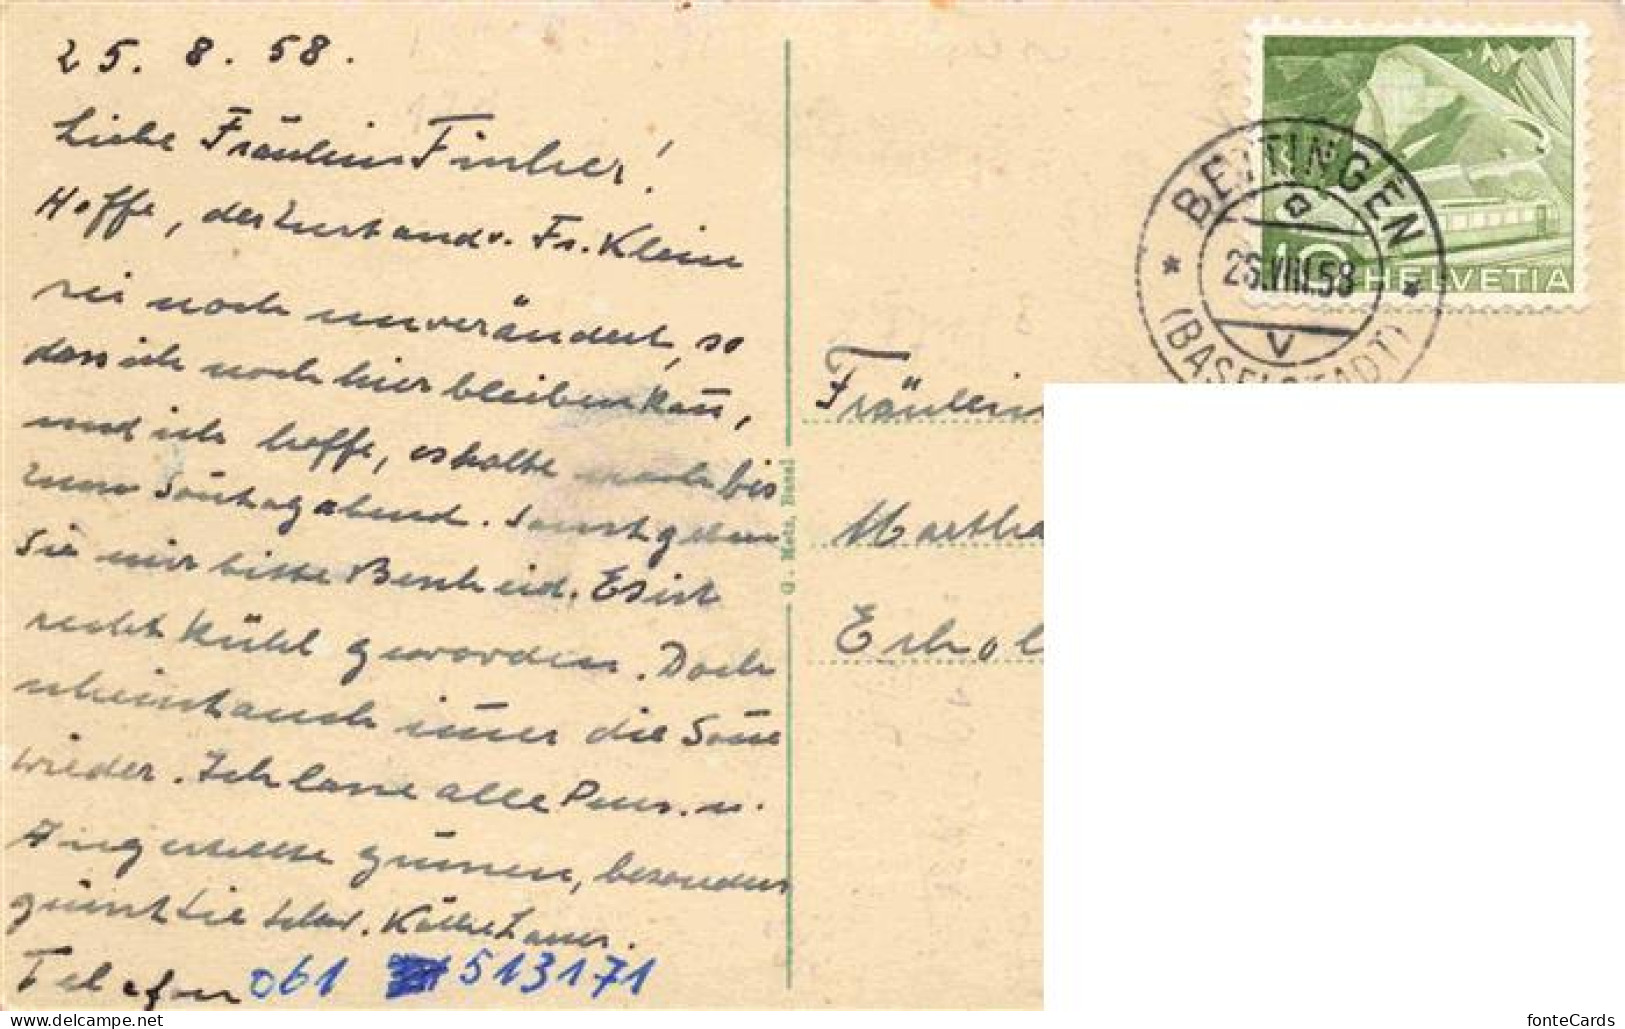 25. 8. 58.
Liebe Fräulein Fischer!
Hoffe, der Zustand v. Fr. Klein
sei noch unverändert, so
dass ich noch hier bleiben kañ,
und ich hoffe, es halte noch bis
zum Soñtagabend. Sonst geben
Sie mir bitte Bescheid. Es ist
recht kühl geworden. Doch
scheint auch im̄er die Soñe
wieder. Ich lasse alle Pens. u.
Angestellte grüssen, besonders
grüsst Sie Schw.
Telefon 061 513171
G. Metz, Basel
BETTINGEN
a
26.VIII.58
V
(BASELSTADT)
10 HELVETIA
Fräulein
Martha
Erhol
fonteCards